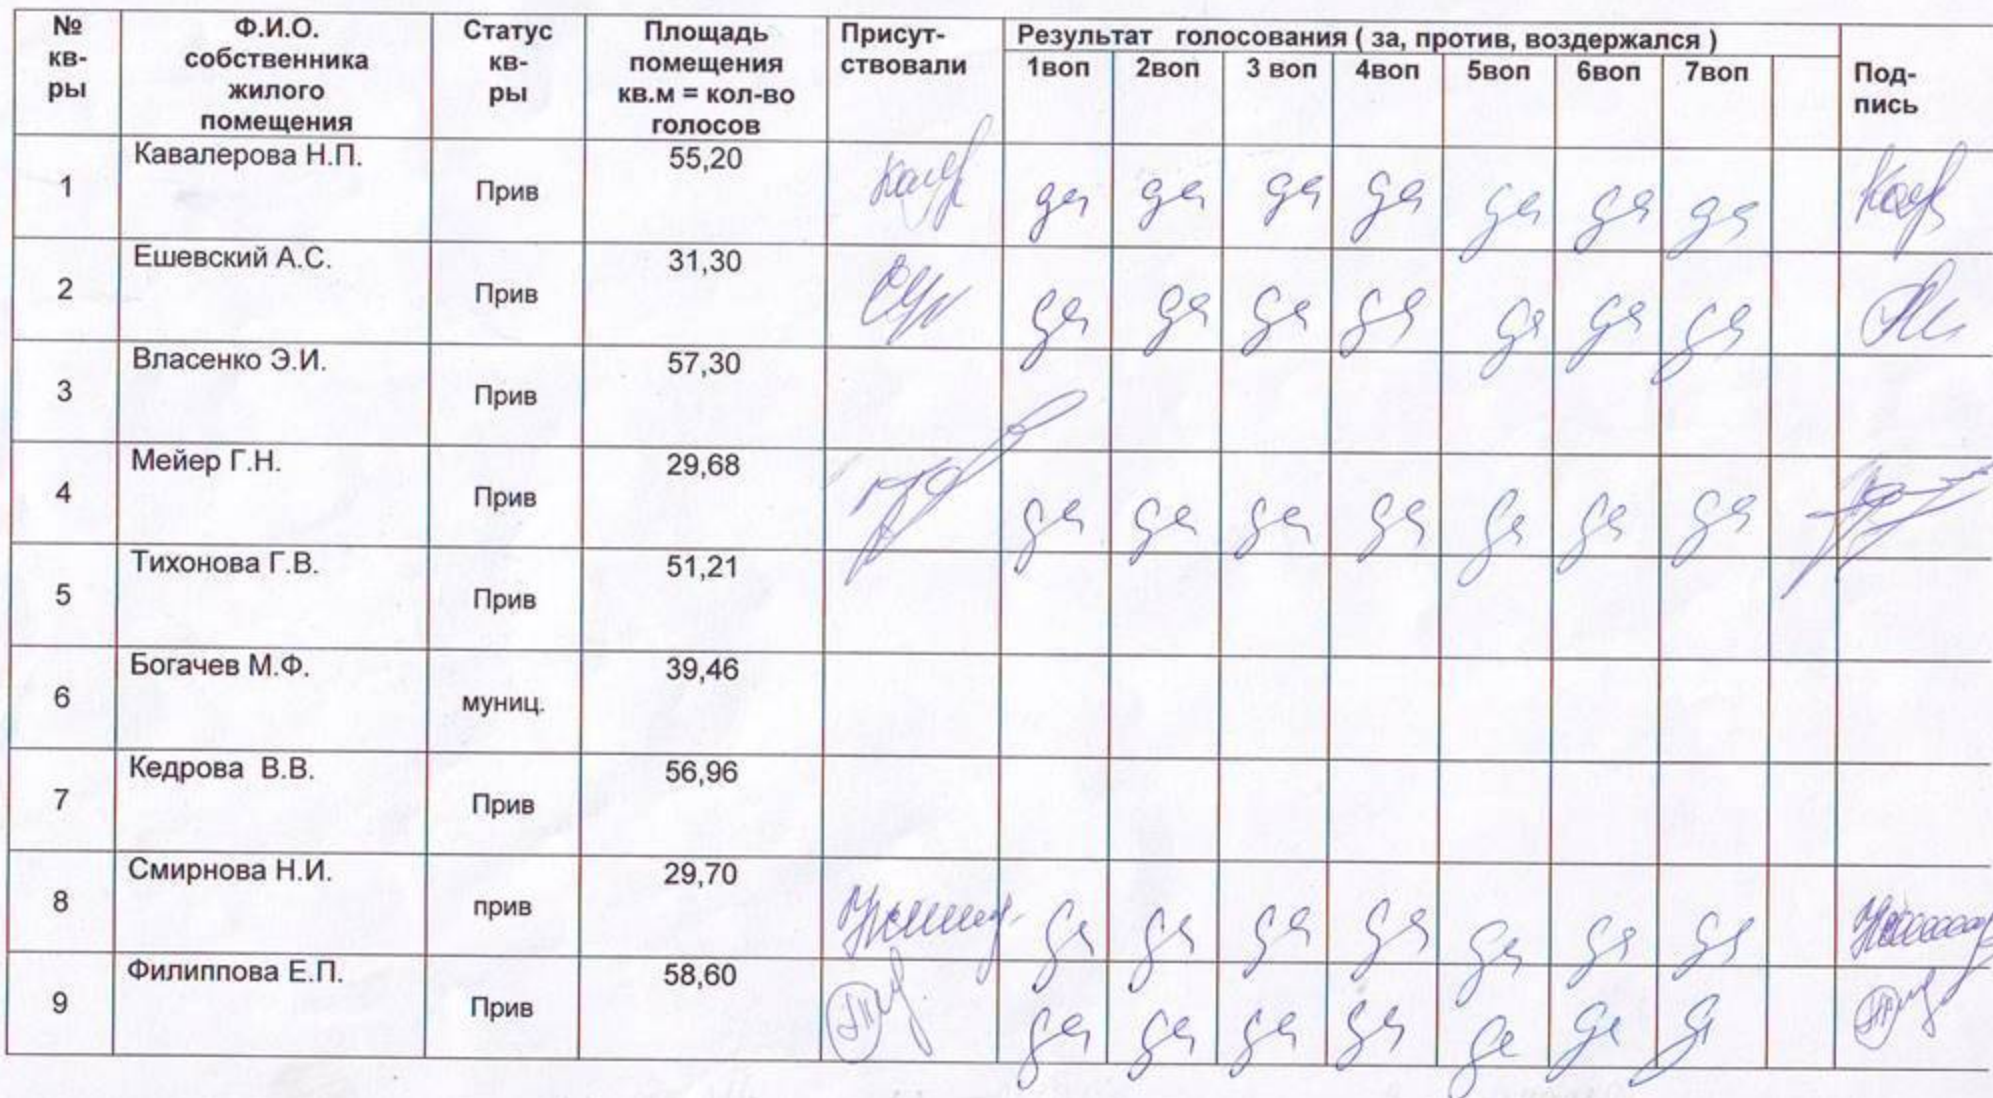 № кв-ры Ф.И.О. собственника жилого помещения Статус кв-ры Площадь помещения кв.м = кол-во голосов Присут-ствовали Результат голосования ( за, против, воздержался ) Под-пись
1воп 2воп 3 воп 4воп 5воп 6воп 7воп
1 Кавалерова Н.П. Прив 55,20 да да да да да да да
2 Ешевский А.С. Прив 31,30 да да да да да да да
3 Власенко Э.И. Прив 57,30
4 Мейер Г.Н. Прив 29,68 да да да да да да да
5 Тихонова Г.В. Прив 51,21
6 Богачев М.Ф. муниц. 39,46
7 Кедрова В.В. Прив 56,96
8 Смирнова Н.И. прив 29,70 да да да да да да да
9 Филиппова Е.П. Прив 58,60 да да да да да да да